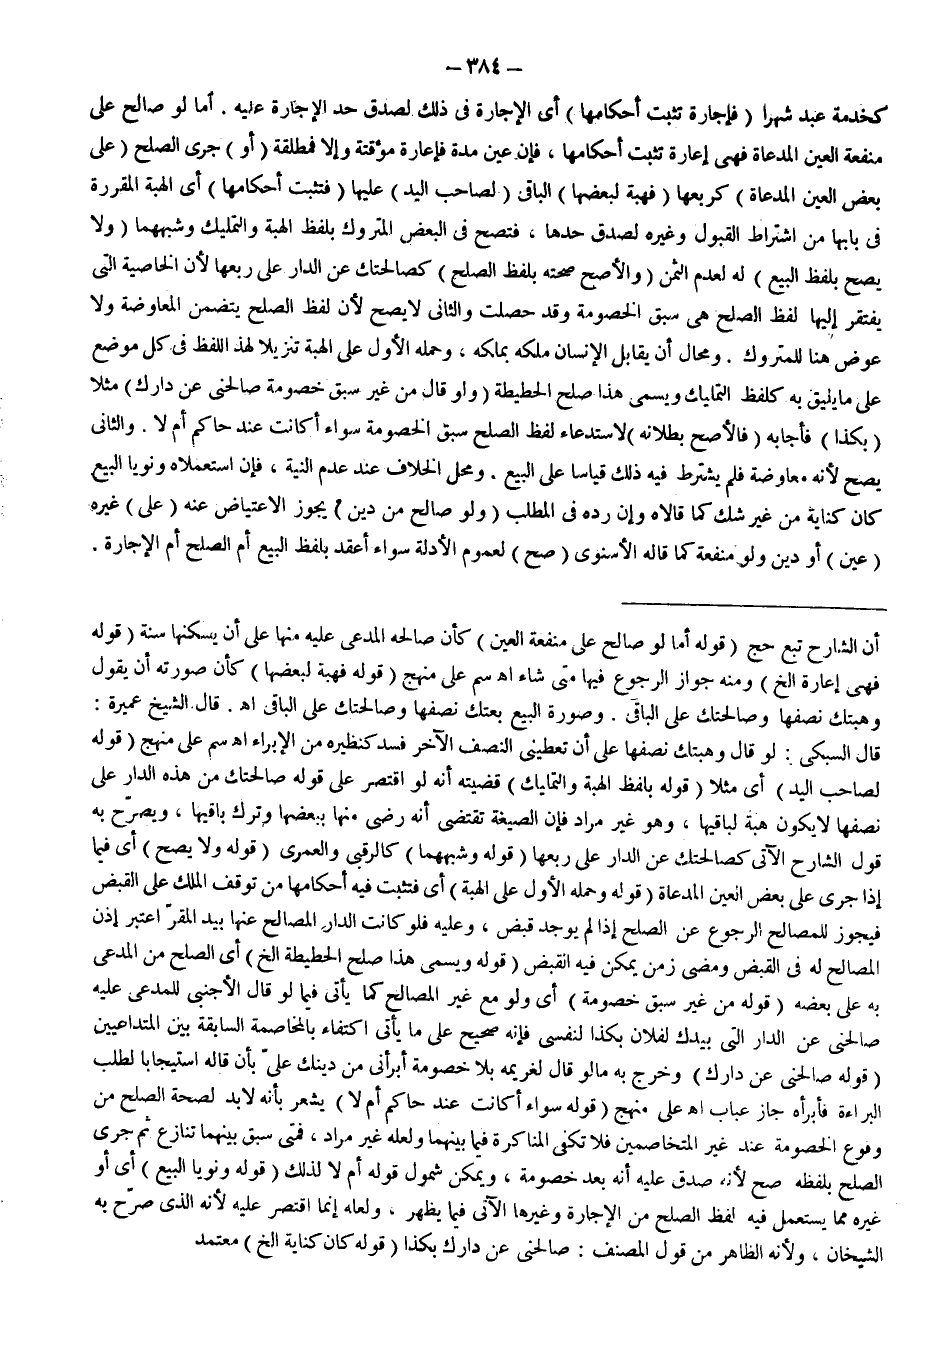 – ٣٨٤ –
كخدمة عبد شهرا ( فإجارة تثبت أحكامها ) أى الإجارة فى ذلك لصدق حد الإجارة عليه . أما لو صالح على
منفعة العين المدعاة فهى إعارة تثبت أحكامها ، فإن عين مدة فإعارة مؤقتة وإلا فمطلقة ( أو ) جرى الصلح ( على
بعض العين المدعاة ) كربعها ( فهبة لبعضها ) الباقى ( لصاحب اليد ) عليها ( فتثبت أحكامها ) أى الهبة المقررة
فى بابها من اشتراط القبول وغيره لصدق حدها ، فتصح فى البعض المتروك بلفظ الهبة والتمليك وشبههما ( ولا
يصح بلفظ البيع ) له لعدم الثمن ( والأصح صحته بلفظ الصلح ) كصالحتك عن الدار على ربعها لأن الخاصية التى
يفتقر إليها لفظ الصلح هى سبق الخصومة وقد حصلت والثانى لايصح لأن لفظ الصلح يتضمن المعاوضة ولا
عوض هنا للمتروك . ومحال أن يقابل الإنسان ملكه بملكه ، وحمله الأول على الهبة تنزيلا لهذ اللفظ فى كل موضع
على مايليق به كلفظ التمليك ويسمى هذا صلح الحطيطة ( ولو قال من غير سبق خصومة صالحنى عن دارك ) مثلا
( بكذا ) فأجابه ( فالأصح بطلانه )لاستدعاء لفظ الصلح سبق الخصومة سواء أكانت عند حاكم أم لا . والثانى
يصح لأنه معاوضة فلم يشترط فيه ذلك قياسا على البيع . ومحل الخلاف عند عدم النية ، فإن استعملاه ونويا البيع
كان كناية من غير شك كما قالاه وإن رده فى المطلب ( ولو صالح من دين ) يجوز الاعتياض عنه ( على ) غيره
( عين ) أو دين ولو منفعة كما قاله الأسنوى ( صح ) لعموم الأدلة سواء أعقد بلفظ البيع أم الصلح أم الإجارة .
أن الشارح تبع حج ( قوله أما لو صالح على منفعة العين ) كأن صالحه المدعى عليه منها على أن يسكنها سنة ( قوله
فهى إعارة الخ ) ومنه جواز الرجوع فيها متى شاء اه سم على منهج ( قوله فهبة لبعضها ) كأن صورته أن يقول
وهبتك نصفها وصالحتك على الباقى . وصورة البيع بعتك نصفها وصالحتك على الباقى اه . قال الشيخ عميرة :
قال السبكى : لو قال وهبتك نصفها على أن تعطينى النصف الآخر فسد كنظيره من الإبراء اه سم على منهج ( قوله
لصاحب اليد ) أى مثلا ( قوله بلفظ الهبة والتمليك ) قضيته أنه لو اقتصر على قوله صالحتك من هذه الدار على
نصفها لايكون هبة لباقيها ، وهو غير مراد فإن الصيغة تقتضى أنه رضى منها ببعضها وترك باقيها ، ويصرّح به
قول الشارح الآتى كصالحتك عن الدار على ربعها ( قوله وشبههما ) كالرقبى والعمرى ( قوله ولا يصح ) أى فيما
إذا جرى على بعض العين المدعاة ( قوله وحمله الأول على الهبة ) أى فتثبت فيه أحكامها من توقف الملك على القبض
فيجوز للمصالح الرجوع عن الصلح إذا لم يوجد قبض ، وعليه فلو كانت الدار المصالح عنها بيد المقرّ اعتبر إذن
المصالح له فى القبض ومضى زمن يمكن فيه القبض ( قوله ويسمى هذا صلح الحطيطة الخ ) أى الصلح من المدعى
به على بعضه ( قوله من غير سبق خصومة ) أى ولو مع غير المصالح كما يأتى فيما لو قال الأجنبى للمدعى عليه
صالحنى عن الدار التى بيدك لفلان بكذا لنفسى فإنه صحيح على ما يأتى اكتفاء بالمخاصمة السابقة بين المتداعيين
( قوله صالحنى عن دارك ) وخرج به مالو قال لغريمه بلا خصومة أبرأنى من دينك علىّ بأن قاله استيجابا لطلب
البراءة فأبرأه جاز عباب اه على منهج ( قوله سواء أكانت عند حاكم أم لا ) يشعر بأنه لابد لصحة الصلح من
وقوع الخصومة عند غير المتخاصمين فلا تكفى المناكرة فيما بينهما ولعله غير مراد ، فمتى سبق بينهما تنازع ثم جرى
الصلح بلفظه صح لأنه صدق عليه أنه بعد خصومة ، ويمكن شمول قوله أم لا لذلك ( قوله ونويا البيع ) أى أو
غيره مما يستعمل فيه لفظ الصلح من الإجارة وغيرها الآتى فيما يظهر ، ولعله إنما اقتصر عليه لأنه الذى صرّح به
الشيخان ، ولأنه الظاهر من قول المصنف : صالحنى عن دارك بكذا ( قوله كان كناية الخ ) معتمد